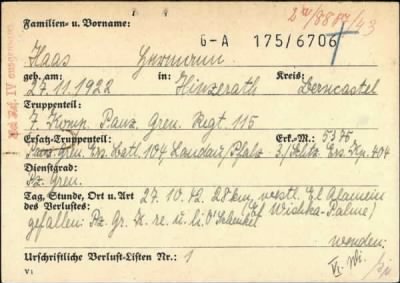 Familien- u. Vorname: 2a/8887/43
Haas Hermann G-A 175/6706
geb. am: in: Kreis:
27.11.1922 Hinzerath Berncastel
Truppenteil:
7. Komp. Panz. Gren. Regt. 115
Ersatz-Truppenteil: Erk.-M.: 5375,
Gren. Ers. Batl. 104, Landau/Pfalz 3/Schtz. Ers. Kp. 404
Dienstgrad:
Pz. Gren.
Tag, Stunde, Ort u. Art 27.10.42. 28 km westl. El Alamein
des Verlustes: (El Wischka-Palme)
gefallen: Pz. Gr. Z. re. u. li. O'Schenkel
wenden:
Urschriftliche Verlust-Listen Nr.: 1
V 1